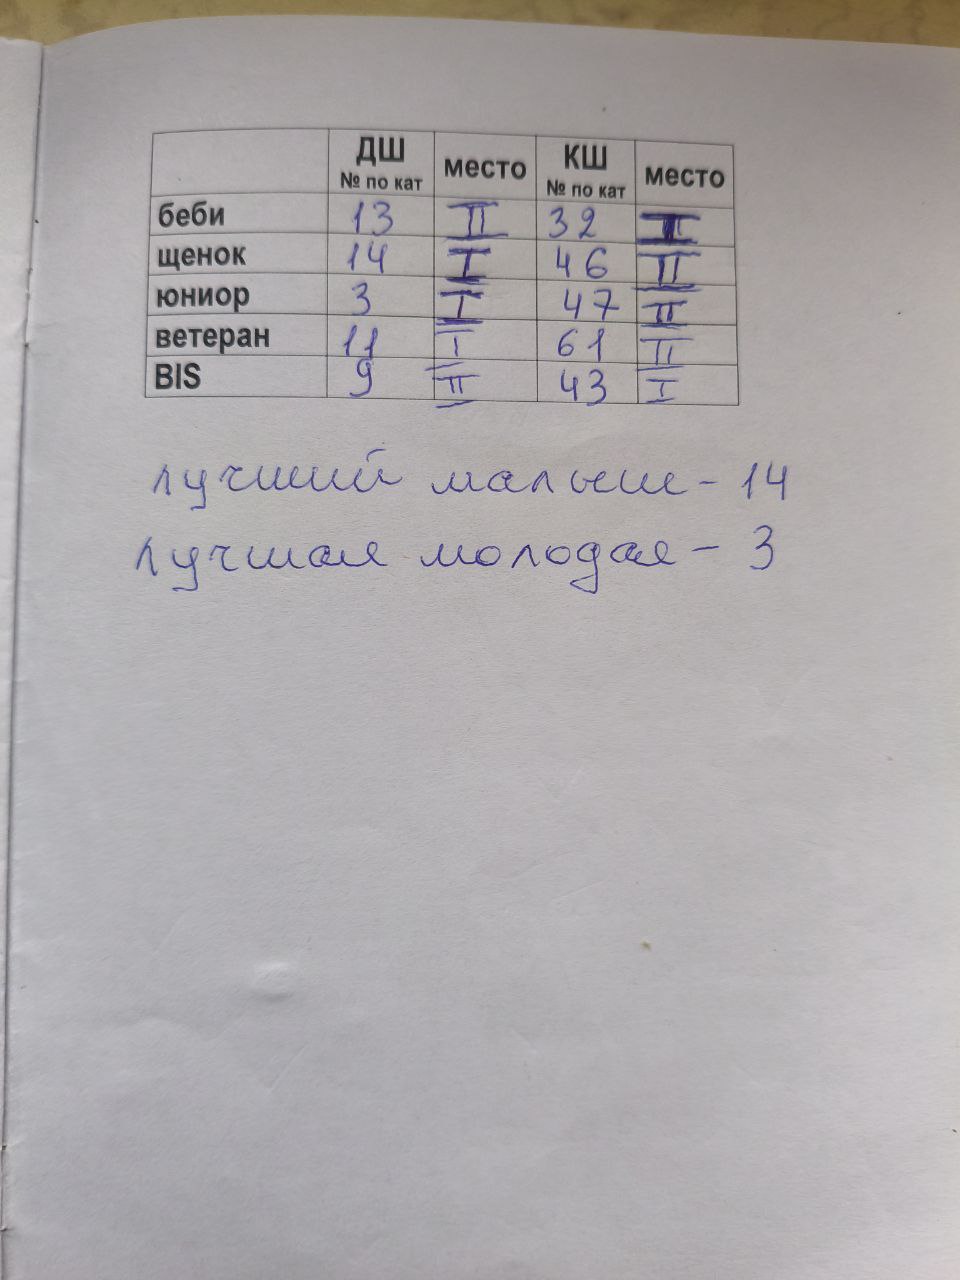 ДШ место КШ место
№ по кат № по кат
беби 13 II 32 I
щенок 14 I 46 II
юниор 3 I 47 II
ветеран 11 I 61 II
BIS 9 II 43 I
лучший малыш - 14
лучшая молодая - 3